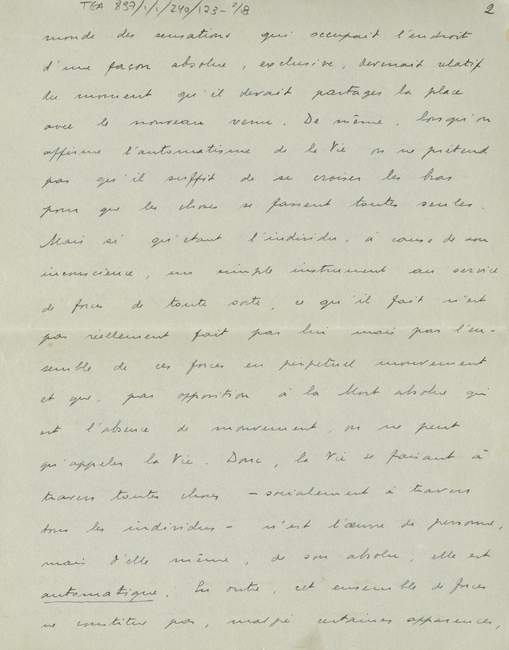 TGA 897/1/1/249/123-2/8
2
monde des sensations qui occupait l'endroit
d'une façon absolue, exclusive, devenait relatif
du moment qu'il devait partager la place
avec le nouveau venu. De même, lorsqu'on
affirme l'automatisme de la Vie on ne prétend
pas qu'il suffit de se croiser les bras
pour que les choses se fassent toutes seules.
Mais si qu'étant l'individu, à cause de son
inconscience, un simple instrument au service
de forces de toute sorte, ce qu'il fait n'est
pas réellement fait par lui mais par l'en-
semble de ces forces en perpétuel mouvement
et que, par opposition à la Mort absolue qui
est l'absence de mouvement, on ne peut
qu'appeler la Vie. Donc, la Vie se faisant à
travers toutes choses - socialement à travers
tous les individus - n'est l'œuvre de personne,
mais d'elle même, de son absolu, elle est
automatique. En outre, cet ensemble de forces
ne constitue pas, malgré certaines apparences,